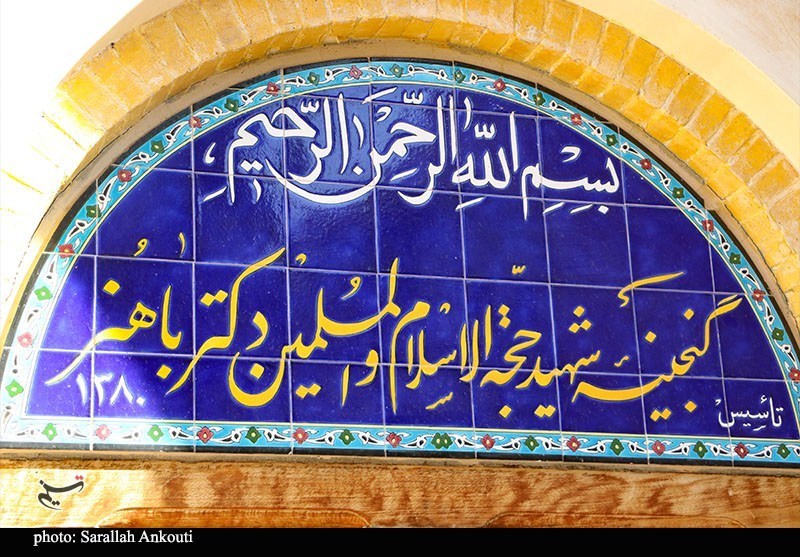 بِسْمِ اللهِ الرَّحْمنِ الرَّحیمِ
گنجینهٔ شهید حجّة الاسلام والمسلمین دکتر باهنر
تأسیس ۱۳۸۰
تسنیم
photo: Sarallah Ankouti